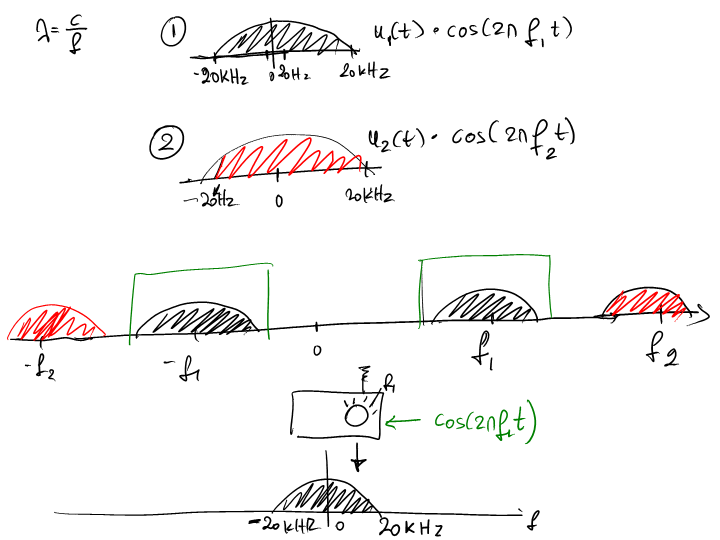 λ = c/f
① u₁(t) · cos(2π f₁ t)
-20kHz 0 20Hz 20kHz
② u₂(t) · cos(2π f₂ t)
-20Hz 0 20kHz
-f₂ -f₁ 0 f₁ f₂
f₁
cos(2πf₁t)
-20kHz 0 20kHz f